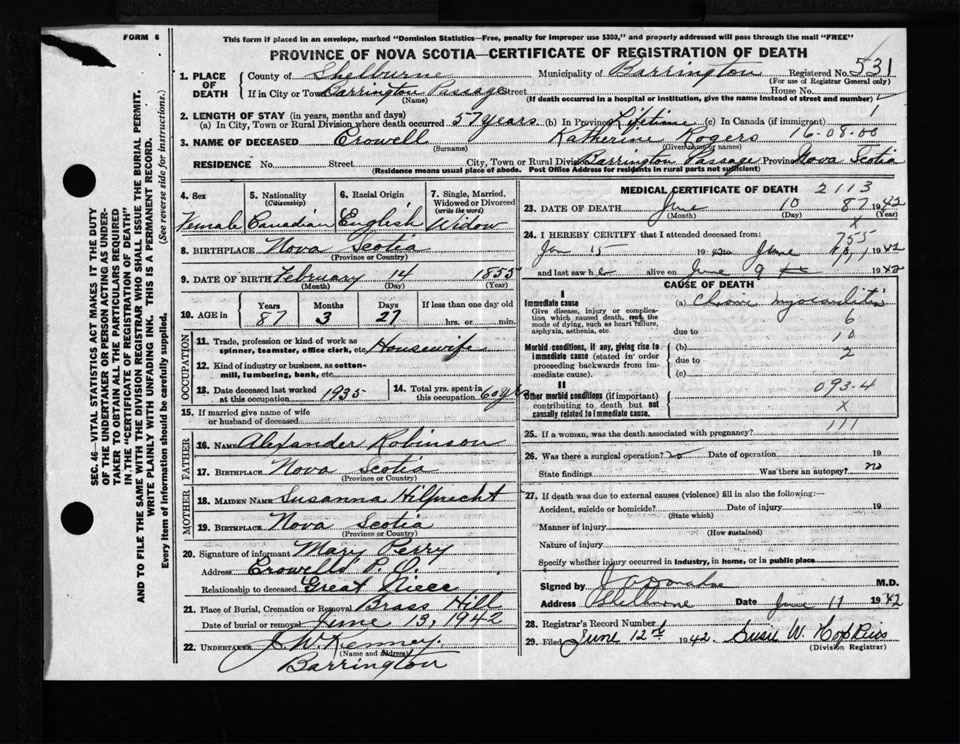 FORM 6
This form if placed in an envelope, marked "Dominion Statistics—Free, penalty for improper use $303," and properly addressed will pass through the mail "FREE"
PROVINCE OF NOVA SCOTIA—CERTIFICATE OF REGISTRATION OF DEATH
SEC. 46—VITAL STATISTICS ACT MAKES IT THE DUTY
OF THE UNDERTAKER OR PERSON ACTING AS UNDER-
TAKER TO OBTAIN ALL THE PARTICULARS REQUIRED
IN THE "CERTIFICATE OF REGISTRATION OF DEATH"
AND TO FILE THE SAME WITH THE DIVISION REGISTRAR WHO SHALL ISSUE THE BURIAL PERMIT.
WRITE PLAINLY WITH UNFADING INK. THIS IS A PERMANENT RECORD.
Every item of information should be carefully supplied. (See reverse side for instructions.)
1. PLACE OF DEATH County of Shelburne Municipality of Barrington Registered No. 531
(For use of Registrar General only)
If in City or Town Barrington Passage Street House No.
(Name) (If death occurred in a hospital or institution, give the name instead of street and number)
2. LENGTH OF STAY (in years, months and days)
(a) In City, Town or Rural Division where death occurred 57 years. (b) In Province Lifetime (c) In Canada (if immigrant) 1
3. NAME OF DECEASED Crowell Katherine Rogers 16-08-00
(Surname) (Given name or names)
RESIDENCE No. Street City, Town or Rural Div. Barrington Passage Province Nova Scotia
(Residence means usual place of abode. Post Office Address for residents in rural parts not sufficient)
4. Sex Female
5. Nationality (Citizenship) Canadian
6. Racial Origin English
7. Single, Married, Widowed or Divorced (write the word) Widow
8. BIRTHPLACE Nova Scotia
(Province or Country)
9. DATE OF BIRTH February 14 1855
(Month) (Day) (Year)
10. AGE in Years 87 Months 3 Days 27 If less than one day old hrs. or min.
OCCUPATION
11. Trade, profession or kind of work as spinner, teamster, office clerk, etc. Housewife
12. Kind of industry or business, as cotton-mill, lumbering, bank, etc.
13. Date deceased last worked at this occupation 1935
14. Total yrs. spent in this occupation 60 yrs
15. If married give name of wife or husband of deceased
FATHER
16. NAME Alexander Robinson
17. BIRTHPLACE Nova Scotia
(Province or Country)
MOTHER
18. MAIDEN NAME Susanna Hilprecht
19. BIRTHPLACE Nova Scotia
(Province or Country)
20. Signature of informant Mary Perry
Address Crowells P.O.
Relationship to deceased Great Niece
21. Place of Burial, Cremation or Removal Brass Hill
Date of burial or removal June 13, 1942
22. UNDERTAKER J. W. Kenney.
(Name and address)
Barrington
MEDICAL CERTIFICATE OF DEATH 2113
23. DATE OF DEATH June 10 87 1942
(Month) (Day) (Year)
x
24. I HEREBY CERTIFY that I attended deceased from: 755
Jan 15 19 to June 10, 1942
and last saw her alive on June 9 1942
CAUSE OF DEATH
I
Immediate cause (a) Chronic myocarditis
Give disease, injury or complication which caused death, not the mode of dying, such as heart failure, asphyxia, asthenia, etc 6
due to 10
Morbid conditions, if any, giving rise to immediate cause (stated in order proceeding backwards from immediate cause).
(b) 2
due to
(c)
II 093.4
Other morbid conditions (if important) contributing to death but not causally related to immediate cause. x
111
25. If a woman, was the death associated with pregnancy?
26. Was there a surgical operation? no Date of operation 19
State findings Was there an autopsy? no
27. If death was due to external causes (violence) fill in also the following:—
Accident, suicide or homicide? Date of injury 19
(State which)
Manner of injury
(How sustained)
Nature of injury
Specify whether injury occurred in industry, in home, or in public place
Signed by M.D.
Address Shelburne Date June 11 1942
28. Registrar's Record Number 1
29. Filed June 12th 1942. Susie W. Hopkins
(Division Registrar)